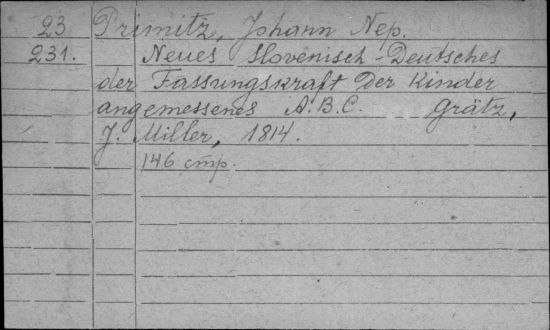 23 Primitz, Johann Nep.
231. Neues Slovenisch-Deutsches
der Fassungskraft der Kinder
angemessenes A.B.C. Grätz,
J. Miller, 1814.
146 стр.